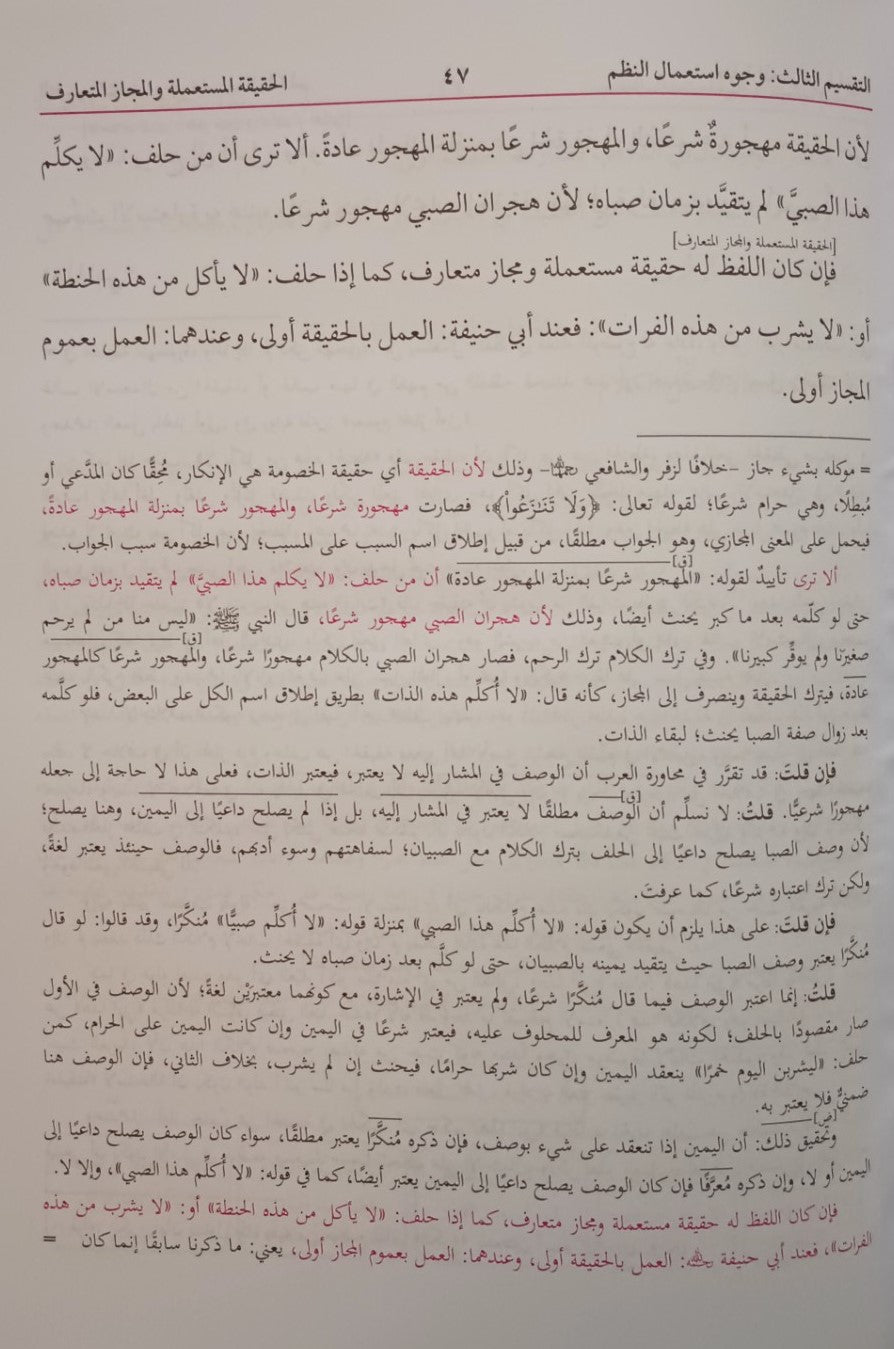 التقسيم الثالث: وجوه استعمال النظم ٤٧ الحقيقة المستعملة والمجاز المتعارف
لأن الحقيقة مهجورةٌ شرعًا، والمهجور شرعًا بمنزلة المهجور عادةً. ألا ترى أن من حلف: «لا يكلِّم
هذا الصبيَّ» لم يتقيَّد بزمان صباه؛ لأن هجران الصبي مهجور شرعًا.
[الحقيقة المستعملة والمجاز المتعارف]
فإن كان اللفظ له حقيقة مستعملة ومجاز متعارف، كما إذا حلف: «لا يأكل من هذه الحنطة»
أو: «لا يشرب من هذه الفرات»: فعند أبي حنيفة: العمل بالحقيقة أولى، وعندهما: العمل بعموم
المجاز أولى.
= موكله بشيء جاز -خلافًا لزفر والشافعي رحمهما الله- وذلك لأن الحقيقة أي حقيقة الخصومة هي الإنكار، مُحِقًّا كان المدَّعي أو
مُبطِلًا، وهي حرام شرعًا؛ لقوله تعالى: ﴿وَلَا تَنَٰزَعُوا۟﴾، فصارت مهجورة شرعًا، والمهجور شرعًا بمنزلة المهجور عادةً،
فيحمل على المعنى المجازي، وهو الجواب مطلقًا، من قبيل إطلاق اسم السبب على المسبب؛ لأن الخصومة سبب الجواب.
[ق]
ألا ترى تأييدٌ لقوله: «المهجور شرعًا بمنزلة المهجور عادة» أن من حلف: «لا يكلم هذا الصبيَّ» لم يتقيد بزمان صباه،
حتى لو كلّمه بعد ما كبر يحنث أيضًا، وذلك لأن هجران الصبي مهجور شرعًا، قال النبي ﷺ: «ليس منا من لم يرحم
[ق]
صغيرَنا ولم يوقِّر كبيرنا». وفي ترك الكلام ترك الرحم، فصار هجران الصبي بالكلام مهجورًا شرعًا، والمهجور شرعًا كالمهجور
عادة، فيترك الحقيقة وينصرف إلى المجاز، كأنه قال: «لا أُكلِّم هذه الذات» بطريق إطلاق اسم الكل على البعض، فلو كلَّمه
بعد زوال صفة الصبا يحنث؛ لبقاء الذات.
فإن قلتَ: قد تقرَّر في محاورة العرب أن الوصف في المشار إليه لا يعتبر، فيعتبر الذات، فعلى هذا لا حاجة إلى جعله
[ق]
مهجورًا شرعيًّا. قلتُ: لا نسلِّم أن الوصف مطلقًا لا يعتبر في المشار إليه، بل إذا لم يصلح داعيًا إلى اليمين، وهنا يصلح؛
لأن وصف الصبا يصلح داعيًا إلى الحلف بترك الكلام مع الصبيان؛ لسفاهتهم وسوء أدبهم، فالوصف حينئذ يعتبر لغةً،
ولكن ترك اعتباره شرعًا، كما عرفتَ.
فإن قلتَ: على هذا يلزم أن يكون قوله: «لا أُكلِّم هذا الصبي» بمنزلة قوله: «لا أُكلِّم صبيًّا» مُنكَّرًا، وقد قالوا: لو قال
مُنكَّرًا يعتبر وصف الصبا حيث يتقيد يمينه بالصبيان، حتى لو كلَّم بعد زمان صباه لا يحنث.
قلتُ: إنما اعتبر الوصف فيما قال مُنكَّرًا شرعًا، ولم يعتبر في الإشارة، مع كونهما معتبَرَيْن لغةً؛ لأن الوصف في الأول
صار مقصودًا بالحلف؛ لكونه هو المعرف للمحلوف عليه، فيعتبر شرعًا في اليمين وإن كانت اليمين على الحرام، كمن
حلف: «ليشربن اليوم خمرًا» ينعقد اليمين وإن كان شربها حرامًا، فيحنث إن لم يشرب، بخلاف الثاني، فإن الوصف هنا
ضمنيٌّ فلا يعتبر به.
[ض]
وتحقيق ذلك: أن اليمين إذا تنعقد على شيء بوصف، فإن ذكره مُنكَّرًا يعتبر مطلقًا، سواء كان الوصف يصلح داعيًا إلى
اليمين أو لا، وإن ذكره مُعرَّفًا فإن كان الوصف يصلح داعيًا إلى اليمين يعتبر أيضًا، كما في قوله: «لا أُكلِّم هذا الصبي»، وإلا لا.
فإن كان اللفظ له حقيقة مستعملة ومجاز متعارف، كما إذا حلف: «لا يأكل من هذه الحنطة» أو: «لا يشرب من هذه
الفرات»، فعند أبي حنيفة رحمه الله: العمل بالحقيقة أولى، وعندهما: العمل بعموم المجاز أولى، يعني: ما ذكرنا سابقًا إنما كان =